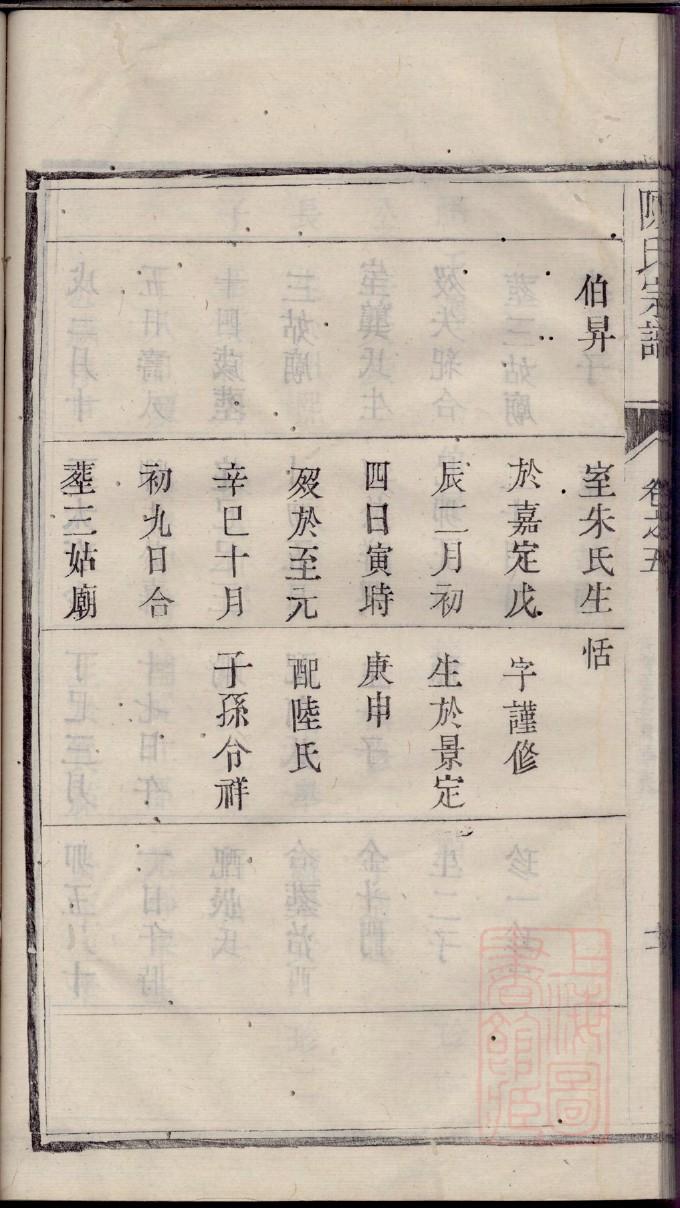 陳氏宗譜
卷之五
伯昇
室朱氏生
於嘉定戊
辰二月初
四日寅時
歿於至元
辛巳十月
初九日合
塟三姑廟
恬
字謹修
生於景定
庚申
配陸氏
子孫令祥
上海圖
書館藏